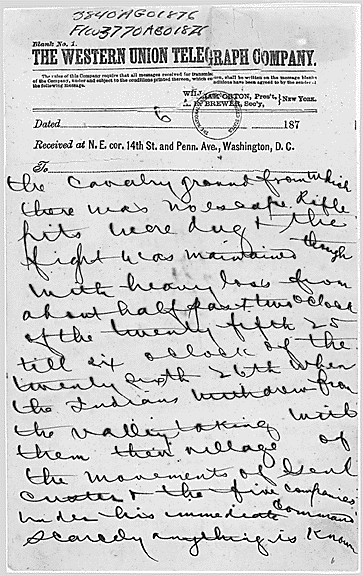 3840 AGO 1876
F/W 3770 AGO 1876
Blank No. 1.
THE WESTERN UNION TELEGRAPH COMPANY.
The rules of this Company require that all messages received for transmission, shall be written on the message blanks
of the Company, under and subject to the conditions printed thereon, which conditions have been agreed to by the sender of
the following message.
ORTON, Pres't,
BREWER, Sec'y,
New York.
6
Dated 187
Received at N. E. cor. 14th St. and Penn. Ave., Washington, D. C.
To
the Cavalry ground from which
there was no escape. Rifle
pits were dug & the
fight was maintained though
with heavy loss from
about half past two oclock
of the twenty fifth 25
till six oclock of the
twenty sixth 26th when
the Indians withdrew from
the valley taking with
them their village of
the movements of Genl
Custer & the five companies
under his immediate Command
scarcely anything is Known
6